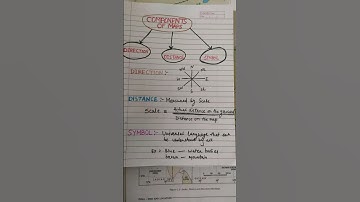 COMPONENTS
OF MAPS
DIRECTION
DISTANCE
SYMBOL
DIRECTION :-
N
NW
NE
W
E
SW
SE
S
DISTANCE :- Measured by Scale
Scale = Actual distance on the ground
Distance on the map
SYMBOL :- Universal language that can
be understood by all
Ex :- Blue — water bodies
brown — mountain